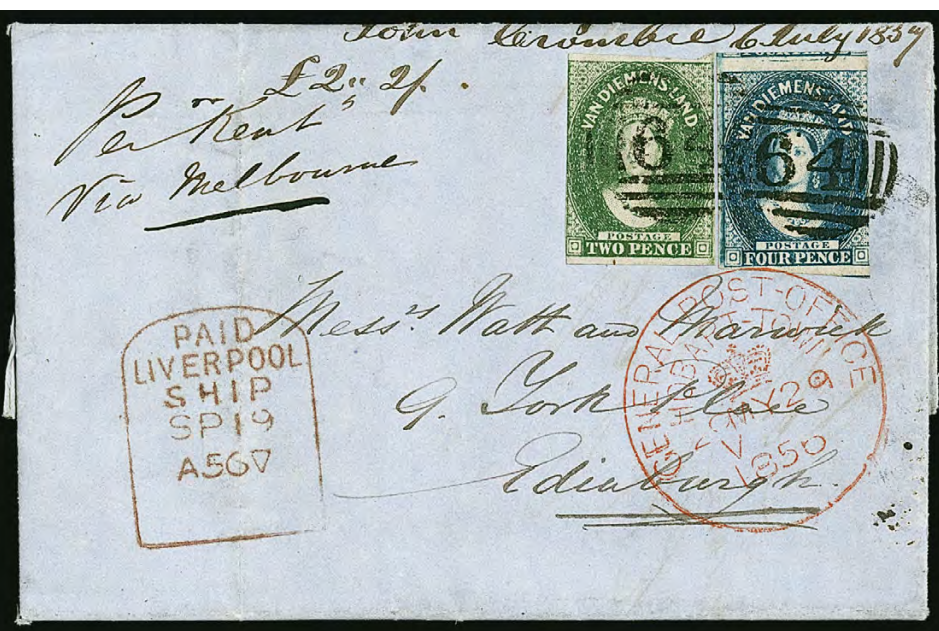 John Crombie 6 July 1857
£2 " 2/.
Per "Kent"
Via Melbourne
VAN DIEMENS LAND
POSTAGE
TWO PENCE
VAN DIEMENS LAND
POSTAGE
FOUR PENCE
64
64
Messrs Watt and Marwick
9. York Place
Edinburgh.
PAID
LIVERPOOL
SHIP
SP19
A56
GENERAL POST-OFFICE
HOBART-TOWN
26
1856